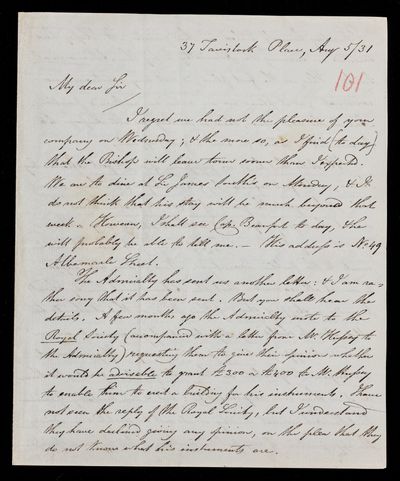 37 Tavistock Place, Aug 5/31
101
My dear Sir
I regret we had not the pleasure of your
company on Wednesday; & the more so, as I find (to day)
that the Bishop will leave town sooner than I hoped.
We are to dine at Sir James South's on Monday, & I
do not think that his stay will be much beyond that
week. However, I shall see Cap. Beaufort to day, & he
will probably be able to tell me. — His address is No 49
Albemarle Street.
The Admiralty has sent us another letter: & I am ra-
ther sorry that it has been sent. But you shall hear the
details. A few months ago the Admiralty wrote to the
Royal Society (accompanied with a letter from Mr. Hussey to
the Admiralty) requesting them to give their opinion whether
it would be advisable to grant £300 or £400 to Mr. Hussey
to enable him to erect a building for his instruments. I have
not seen the reply of the Royal Society, but I understand
they have declined giving any opinion, on the plea that they
do not know what his instruments are.